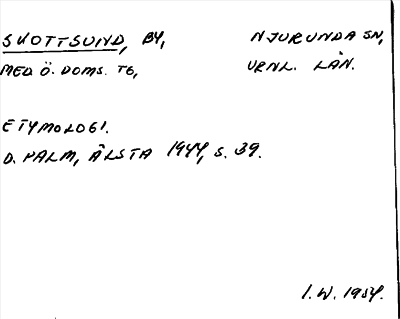 SKOTTSUND, BY, NJURUNDA SN,
MED Ö. DOMS. TG, VRNL. LÄN.
ETYMOLOGI.
D. PALM, ÄLSTA 1944, S. 39.
I. W. 1954.